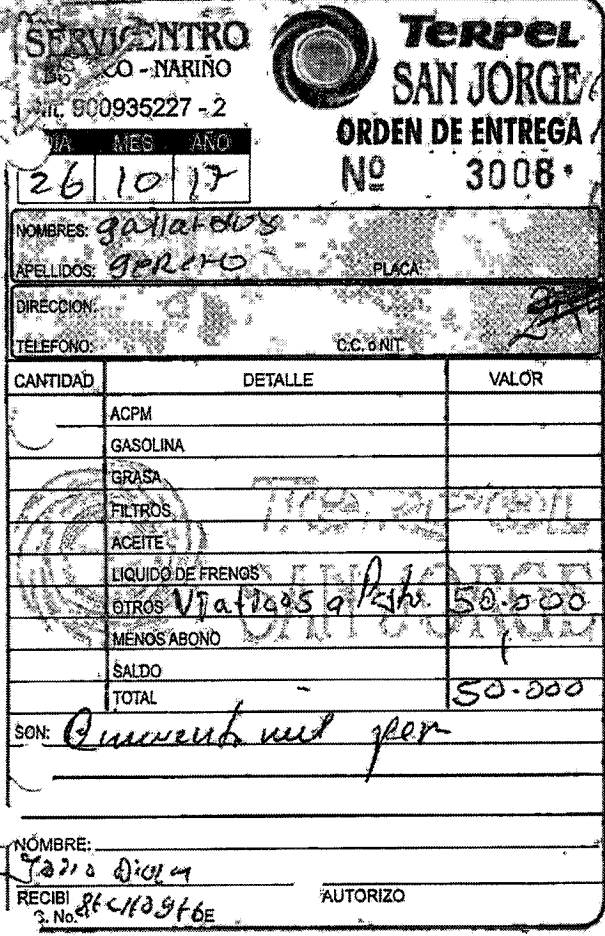 SERVICENTRO
CO - NARIÑO
Nit. 900935227 - 2
TERPEL
SAN JORGE
ORDEN DE ENTREGA
Nº 3008
DIA MES AÑO
26 10 17
NOMBRES: gallardos
APELLIDOS: PLACA:
DIRECCION:
TELEFONO: C.C. o NIT.
CANTIDAD DETALLE VALOR
ACPM
GASOLINA
GRASA
FILTROS
ACEITE
LIQUIDO DE FRENOS
OTROS Viaticos a Pasto 50.000
MENOS ABONO
SALDO
TOTAL 50.000
SON: mil
NOMBRE:
RECIBI AUTORIZO
C. No. DE